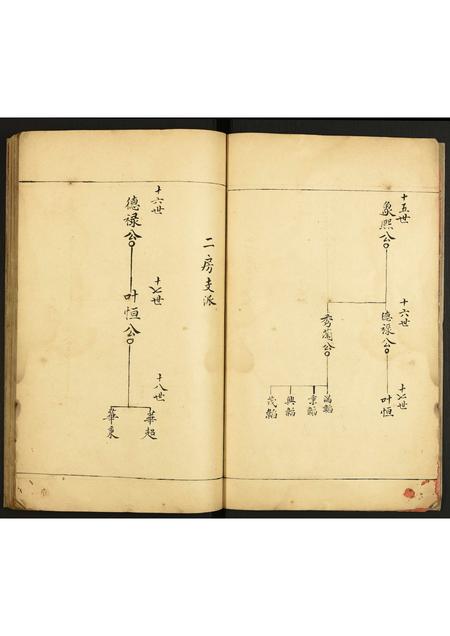 十五世
象熙公
十六世
德禄公
十七世
叶恒
秀蘭公
滿韜
東韜
興韜
茂韜
二房支派
十六世
德禄公
十七世
叶恒公
十八世
華超
華東